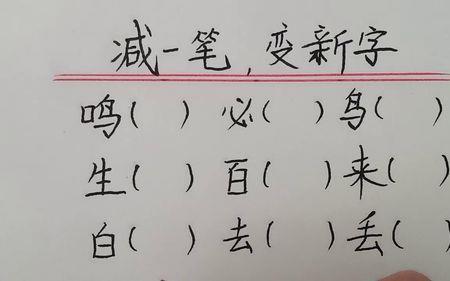 减一笔，变新字
鸣（ ）必（ ）鸟（ ）
生（ ）百（ ）来（ ）
白（ ）去（ ）丢（ ）